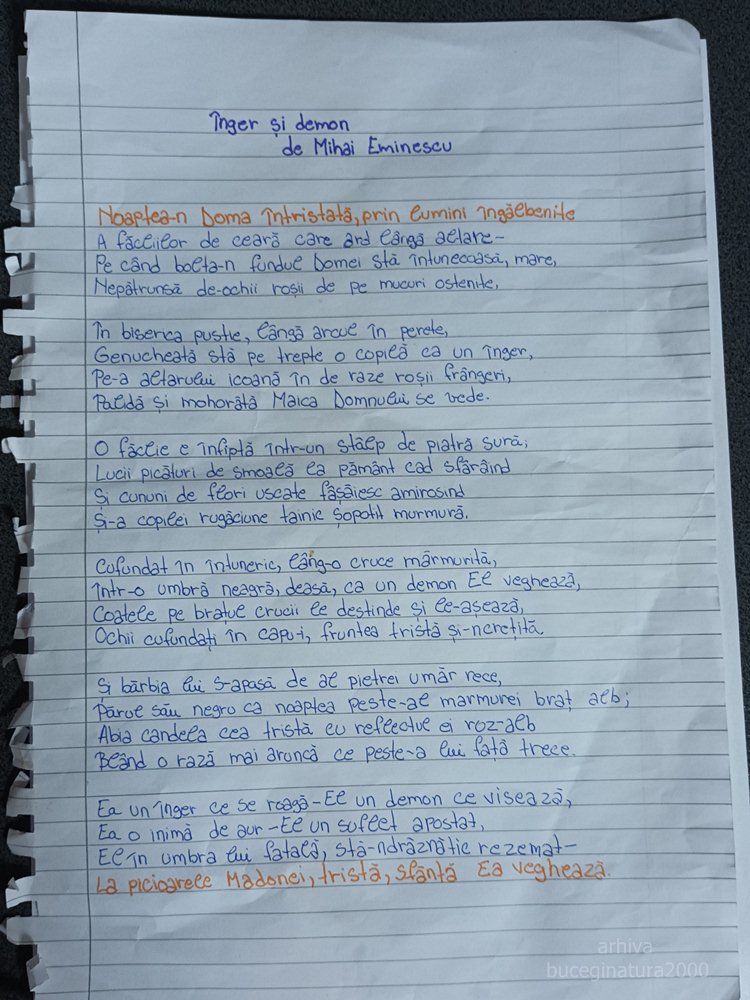 Înger și demon
de Mihai Eminescu
Noaptea-n Doma întristată, prin lumini îngălbenite
A făcliilor de ceară care ard lângă altare-
Pe când bolta-n fundul Domei stă întunecoasă, mare,
Nepătrunsă de-ochii roșii de pe mucuri ostenite,
În biserica pustie, lângă arcul în perete,
Genucheată stă pe trepte o copilă ca un înger,
Pe-a altarului icoană în de raze roșii frângeri,
Palidă și mohorâtă Maica Domnului se vede.
O făclie e înfiptă într-un stâlp de piatră sură;
Lucii picături de smoală la pământ cad sfârâind
Și cununi de flori uscate fâșâiesc amirosind
Și-a copilei rugăciune tainic șopotit murmură.
Cufundat în întuneric, lâng-o cruce mărmurită,
Într-o umbră neagră, deasă, ca un demon El veghează,
Coatele pe brațul crucii le destinde și le-așează,
Ochii cufundați în capu-i, fruntea tristă și-ncrețită.
Și bărbia lui s-apasă de al pietrei umăr rece,
Părul său negru ca noaptea peste-al marmurei braț alb;
Abia candela cea tristă cu reflectul ei roz-alb
Blând o rază mai aruncă ce peste-a lui față trece.
Ea un înger ce se roagă-El un demon ce visează,
Ea o inimă de aur-El un suflet apostat,
El în umbra lui fatală, stă-ndrăznătic rezemat-
La picioarele Madonei, tristă, sfântă Ea veghează.
arhiva
buceginatura2000